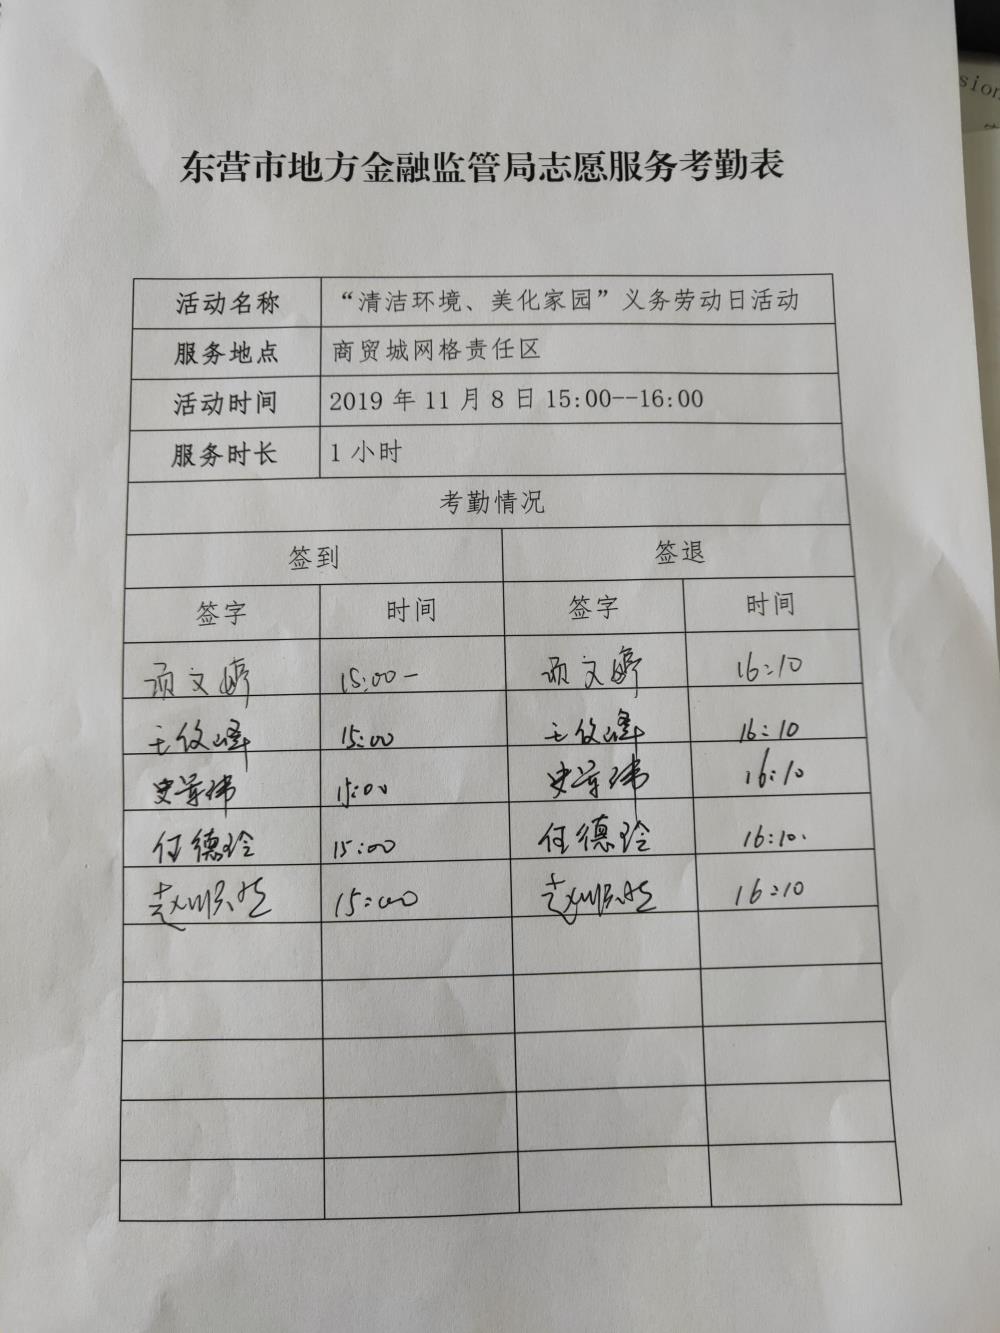 东营市地方金融监管局志愿服务考勤表
活动名称 “清洁环境、美化家园”义务劳动日活动
服务地点 商贸城网格责任区
活动时间 2019 年 11 月 8 日 15:00--16:00
服务时长 1 小时
考勤情况
签到 签退
签字 时间 签字 时间
项文婷 15:00- 项文婷 16:10
王俊峰 15:00 王俊峰 16:10
史 15:00 史 16:10
任德玲 15:00 任德玲 16:10.
赵 15:00 赵 16:10
sion